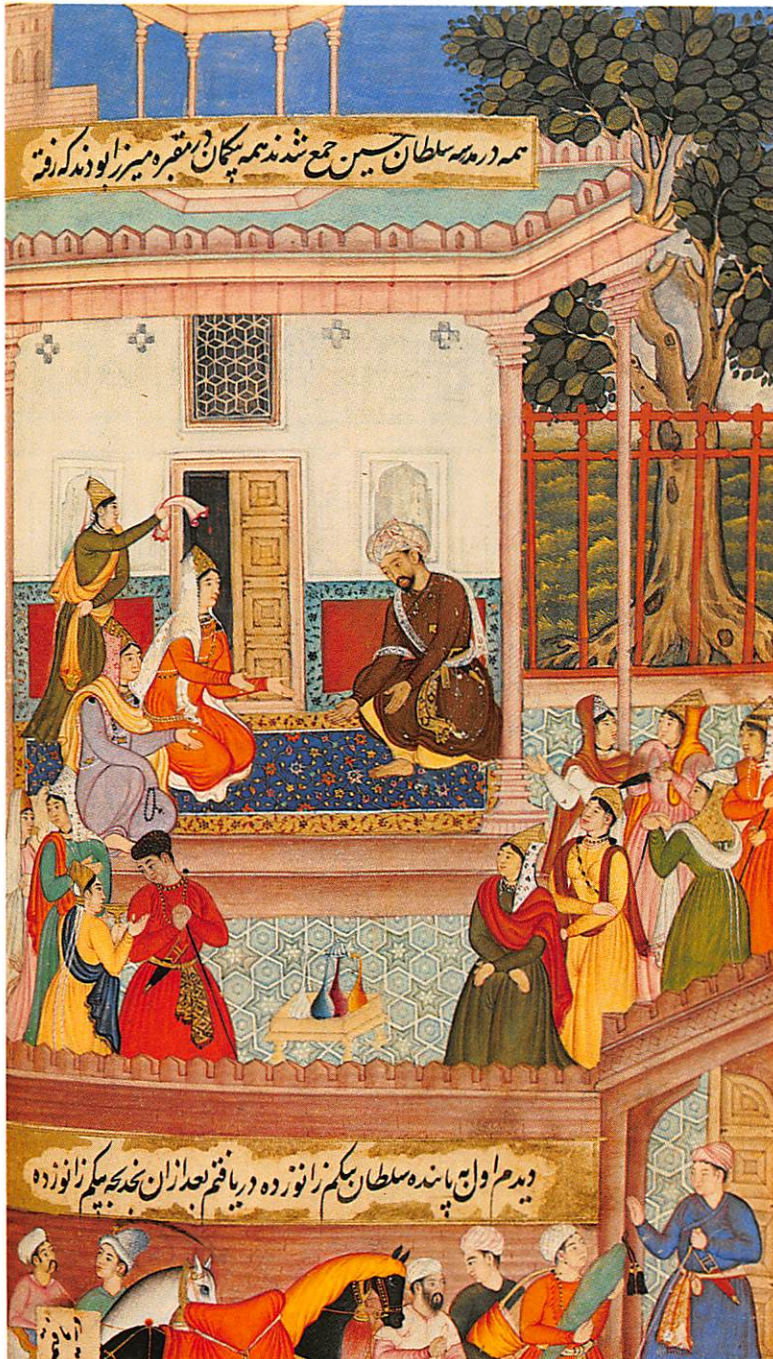 همه در مدرسه سلطان حسین جمع شدند همه بیکمان در مقبره میرزا بودند که رفته
دیدم اول به پاینده سلطان بیکم زانو زده دریافتم بعد ازان بخدیجه بیکم زانو زده